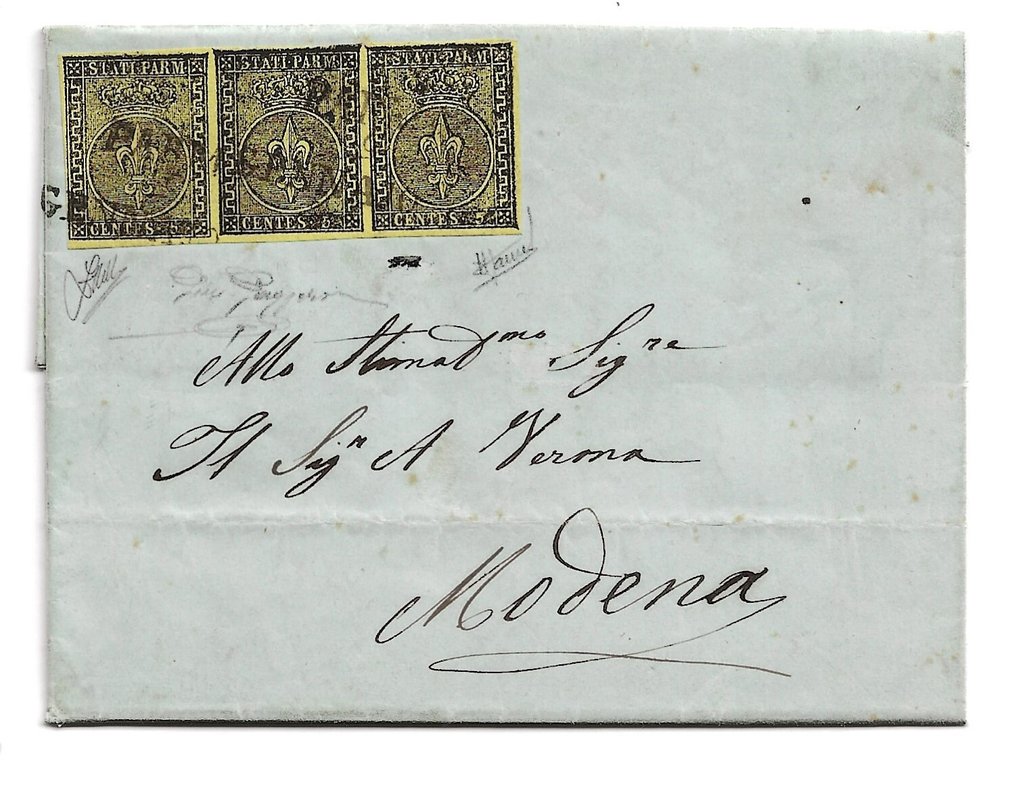 STATI PARM STATI PARM STATI PARM
CENTES. 5 CENTES. 5 CENTES. 5
Allo Stimad.mo Sig.re
Il Sig.r A Verona
Modena